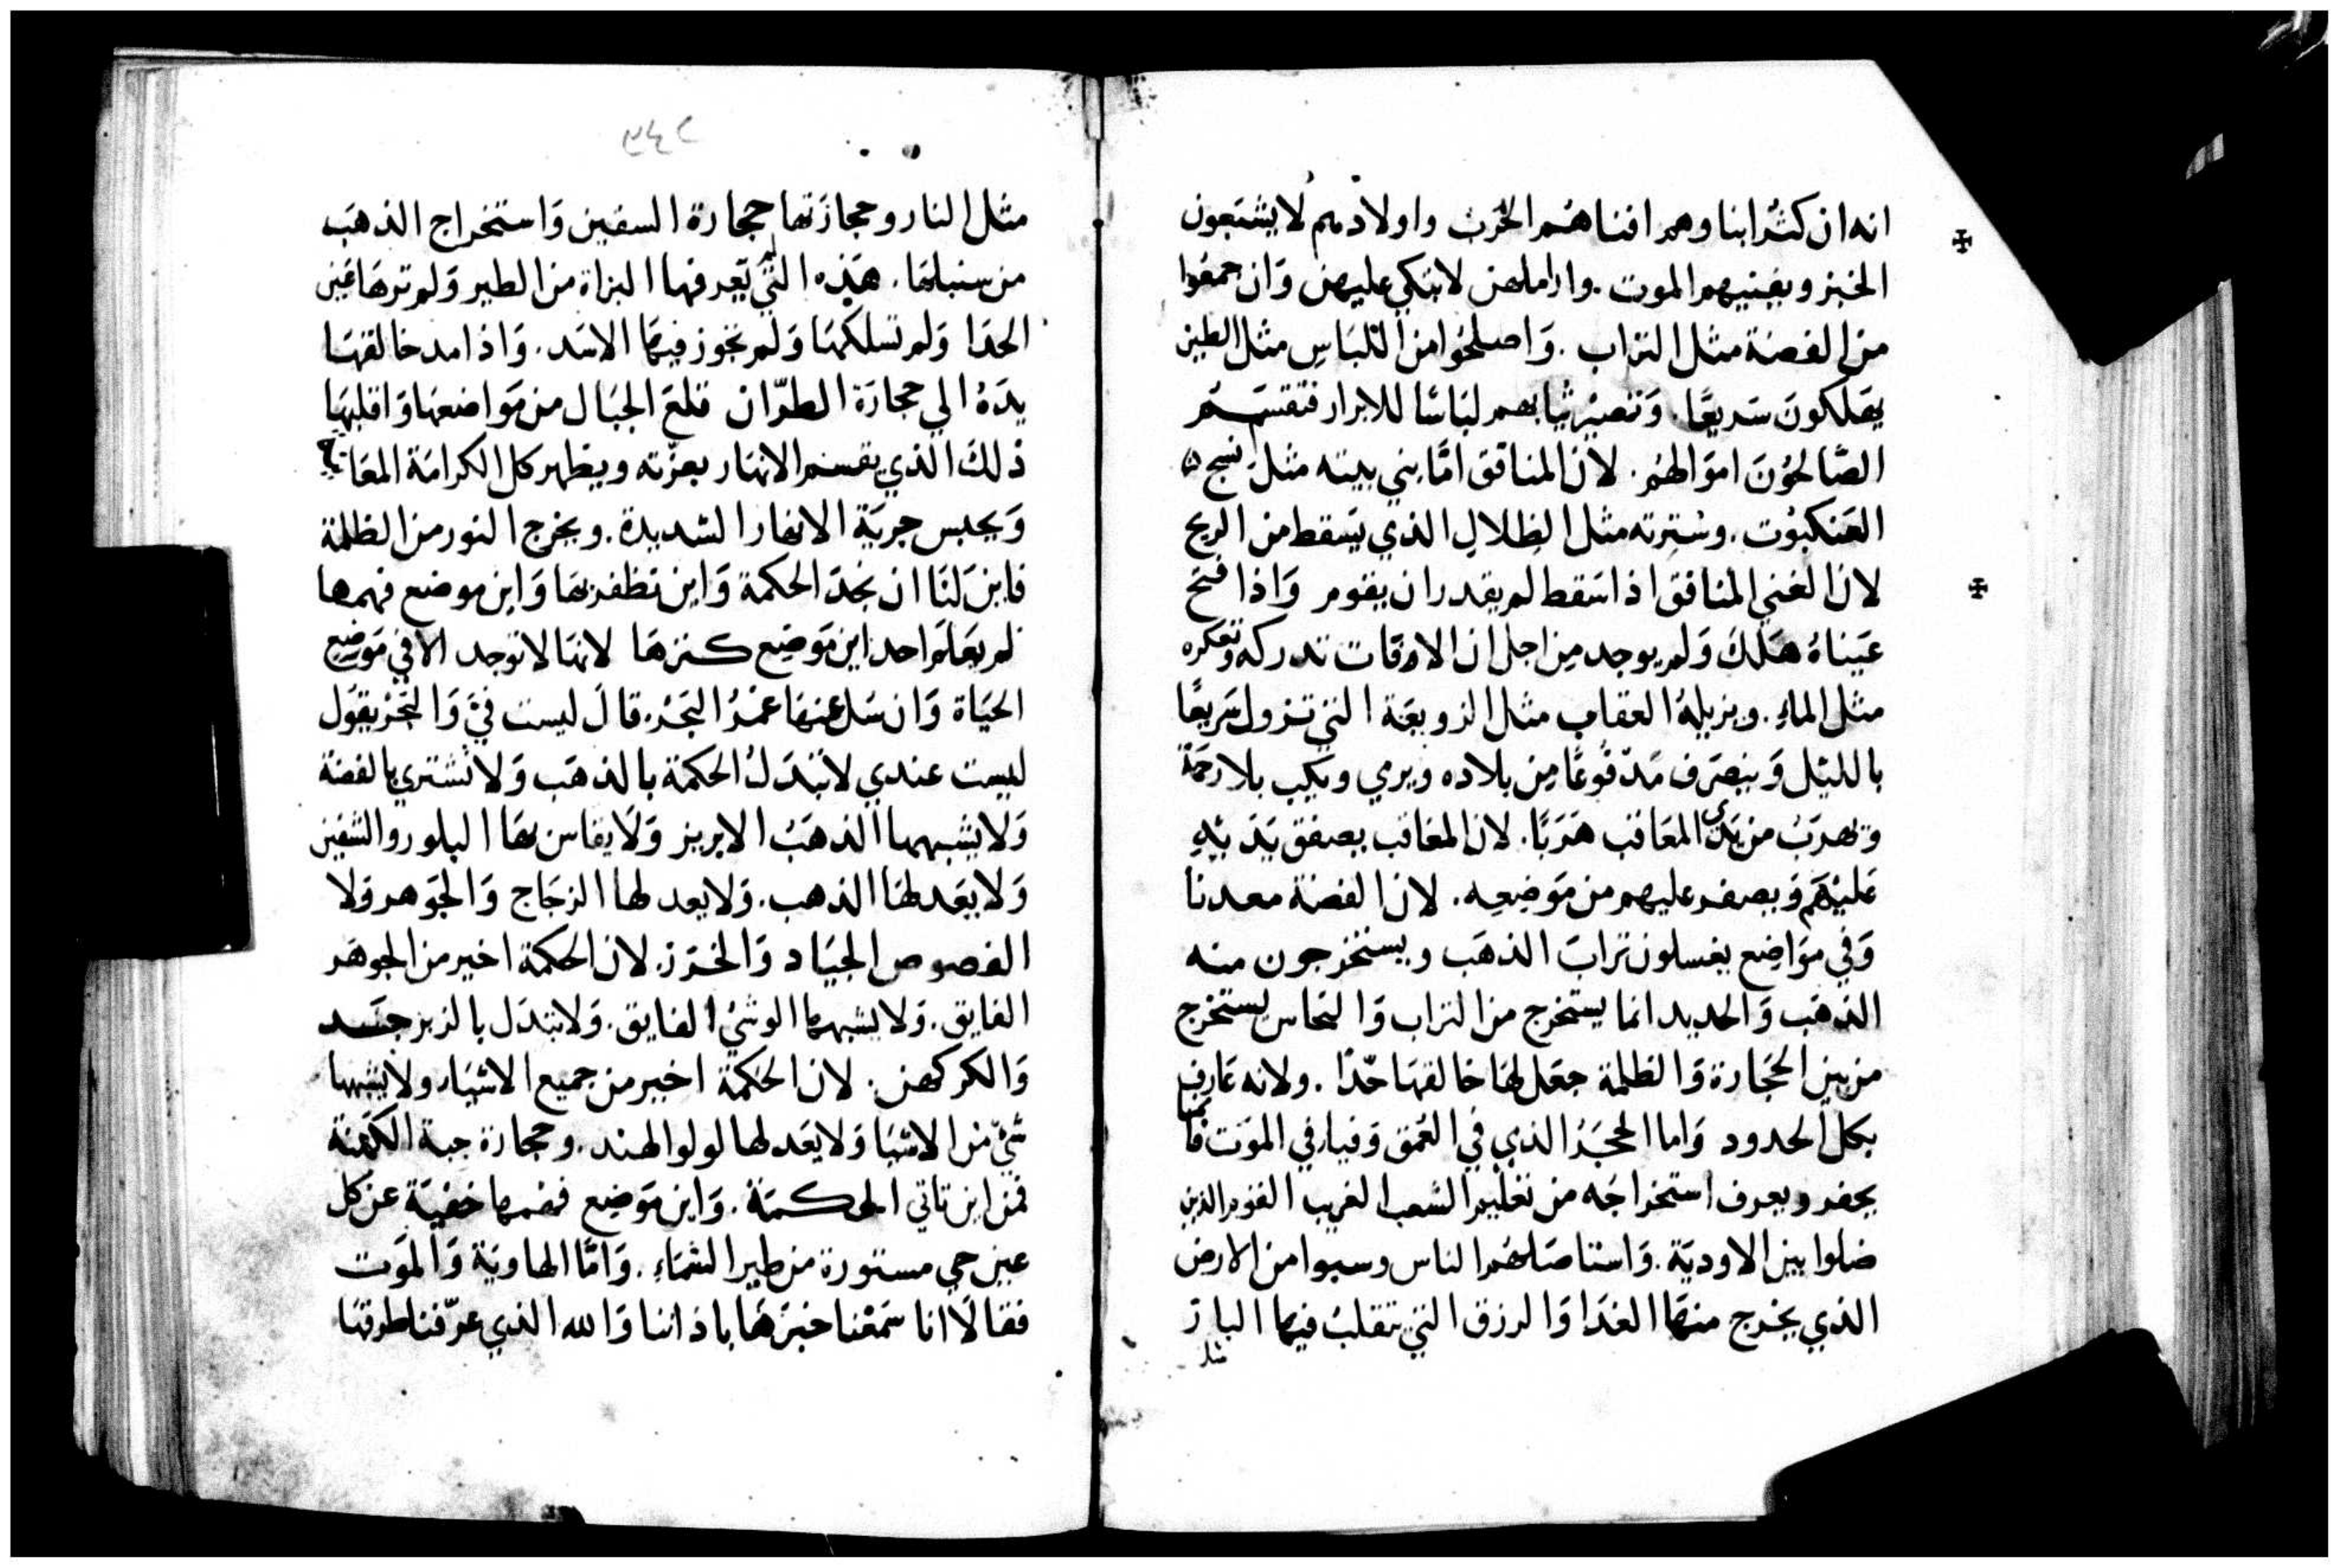 انه ان كثر ابناوهم افناهم الحرب واولادهم لا يشبعون
الخبز ويفنيهم الموت. واراملهن لا تبكي عليهن وَان جمعوا
من الفضة مثل التراب. وَاصلحُوا من اللبَاسِ مثل الطين
يهلكونَ سَريعًا. وَتصير ثيابهم لبَاسًا للابرار فتقسم
الصَّالحُونَ اموَالهُم. لان المنافق امَّا بني بيته مثل نسج
العَنكبُوت. وسُترته مثل الظِلالِ الذي يَسقط من الريح
لان الغني المنافق اذا سَقط لم يقدر ان يقوم وَاذا فتح
عَيناهُ هَلكَ وَلم يوجد مِن اجل ان الاوقات تدركه وتعكره
مثل الماءِ. ويزيلهُ العقاب مثل الزوبعَة التي تزول سَريعًا
بالليْل وَينصَرف مَدفُوعًا مِن بلاده ويرمي ويكب بلا رحمَة
وتهرَبُ من يَدَي المعَاقب هَرَبًا. لان المعاقب يصفق بيَديْهِ
عَليْهَم وَيصفر عليهم من مَوَضِعِه. لان الفضة معدنا
وَفي موَاضِع يغسلون ترابَ الذهَب ويستخرجون منه
الذهَب وَالحديد انما يستخرج من التراب وَالنحاس يستخرج
من بين الحجَارة وَالظلمة جعَل لهَا خالقهَا حّدًا. ولانه عَارف
بكل الحدود وَاما الحجَرُ الذي في العُمق وَفيار في الموَت فانما
يحفر ويعرف استخراجَه من تغليم الشعب الغريب القوم الذين
ضلوا بين الاوديَة. وَاستاصَلهُم الناس وسبوا من الارض
الذي يخرج منهَا الغدَا وَالرزق التي تتقلبُ فيها البار
مثل
مثل النار وحجارَتها حجارة السفين وَاستخراج الذهَب
من سنبلهَا. هَذِه التَي تَعِرفها البزاة من الطير وَلم ترهَا عَين
الحدَا وَلم تسلكهَا وَلم تجوز فيهَا الاسَد. وَاذا مد خالقهَا
يدَهُ الي حجارَة الطرّان قلعَ الجبَال من مَوَاضعهَا وَاقلبهَا
ذلكَ الذي يقسم الانهَار بعزّته ويظهر كل الكرامَة المعَا
وَيحبس جريَة الانهار الشديدة. ويخرج النور من الظلمة
فاين لنَا ان نجدَ الحكمة وَاين نظفر بهَا وَاين موضع فهمها
لم يعَلم احد اين مَوَضِع كنزهَا لانهَا لا توجد الا في مَوَضِع
الحيَاة وَان سَل عنهَا عمْرُ البَحْرُ. قالَ ليست فيَّ وَالبَحْرُ يقوَل
ليست عندي لا تبتدَلُ الحكمة بالذهَب وَلا تُشتري بالفضة
وَلا يشبهها الذهَبُ الابريز وَلا يقاس بهَا البلور والشفين
وَلا يعَد لهَا الذهب. وَلا يعد لها الزجَاج وَالجَوهر وَلا
الفصوص الجيَاد وَالخرَز. لان الحكمة اخير من الجوهَر
الفايق. وَلا يشبهها الوشيُ الفايق. وَلا تبتدَل بالزبرجسَد
وَالكركهن. لان الحَكمة اخير من جميع الاشيَاء ولا يشبهها
شيُ من الاشيَا وَلا يعَد لها لولو الهند. وحجارة جبة الكهنَة
فمن اين تاتي الحكمَة. وَاين مَوَضِع فهمها خفيَة عن كل
عين حي مستورة من طير السَّمَاءِ. وَامَّا الهاويَة وَالموَت
فقالَا انا سَمَعْنا خبرهَا باذاننا وَالله الذي عرّفنا طرقهَا